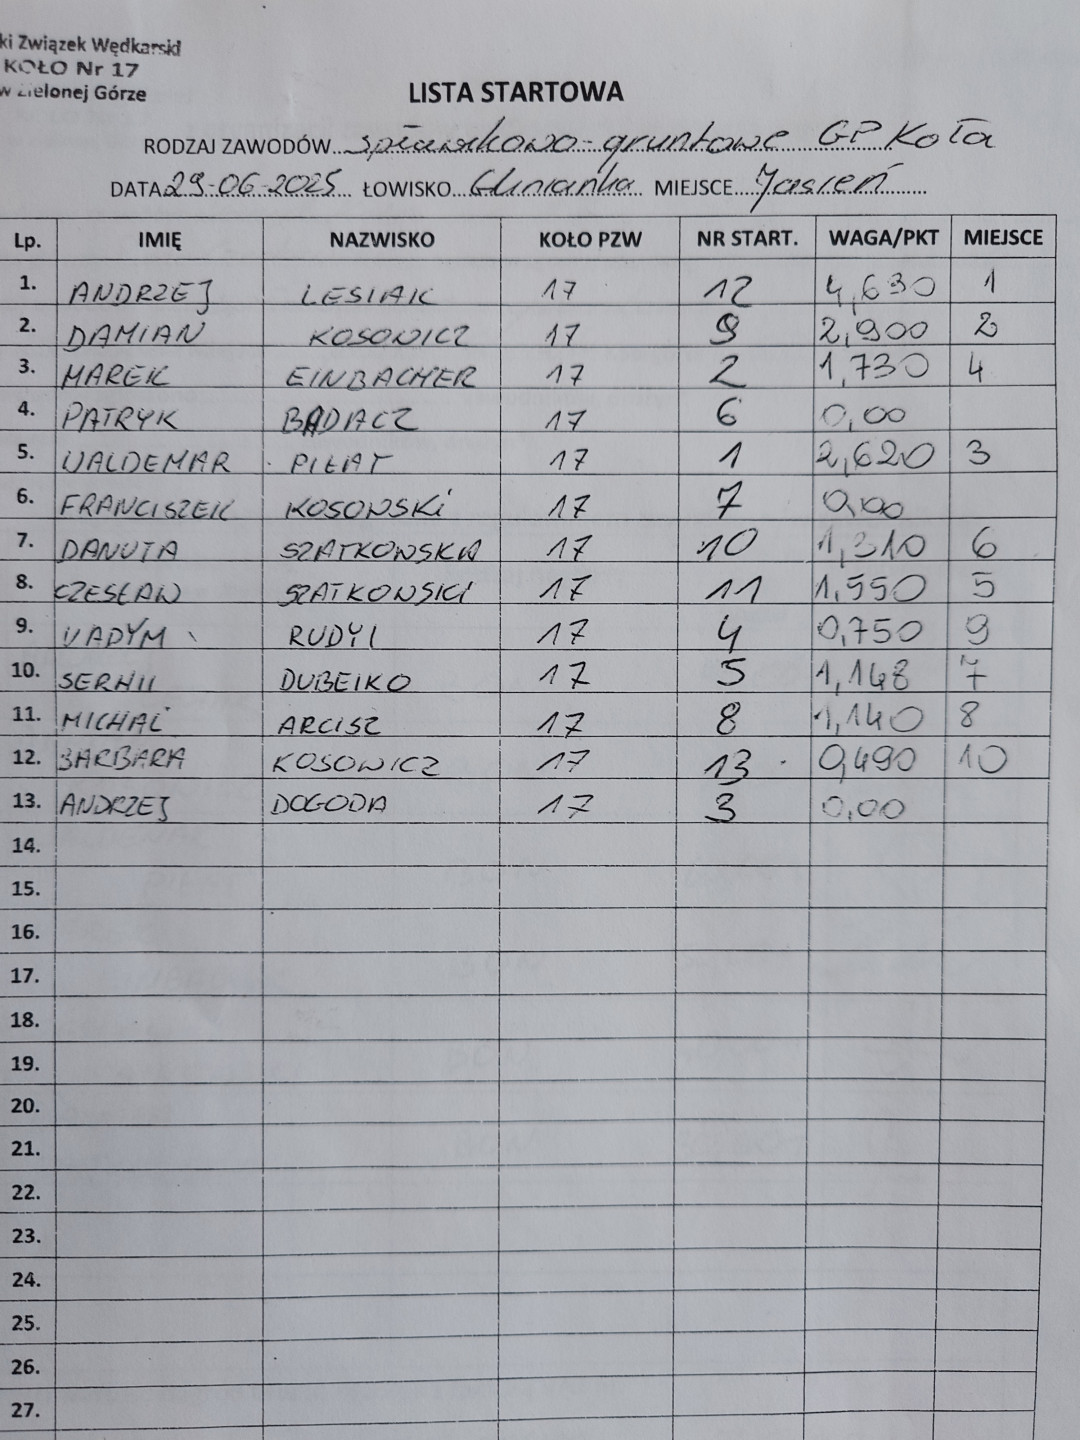 ki Związek Wędkarski
KOŁO Nr 17
w Zielonej Górze
LISTA STARTOWA
RODZAJ ZAWODÓW spławikowo-gruntowe GP Koła
DATA 29-06-2025 ŁOWISKO Glinianka MIEJSCE Jasień
Lp. IMIĘ NAZWISKO KOŁO PZW NR START. WAGA/PKT MIEJSCE
1. ANDRZEJ LESIAK 17 12 4,630 1
2. DAMIAN KOSOWICZ 17 9 2,900 2
3. MAREK EINBACHER 17 2 1,730 4
4. PATRYK BADACZ 17 6 0,00
5. WALDEMAR PIŁAT 17 1 2,620 3
6. FRANCISZEK KOSOWSKI 17 7 0,00
7. DANUTA SZATKOWSKA 17 10 1,310 6
8. CZESŁAW SZATKOWSKI 17 11 1,550 5
9. VADYM RUDYI 17 4 0,750 9
10. SERHII DUBEIKO 17 5 1,148 7
11. MICHAŁ ARCISZ 17 8 1,140 8
12. BARBARA KOSOWICZ 17 13 0,490 10
13. ANDRZEJ DOGODA 17 3 0,00
14.
15.
16.
17.
18.
19.
20.
21.
22.
23.
24.
25.
26.
27.